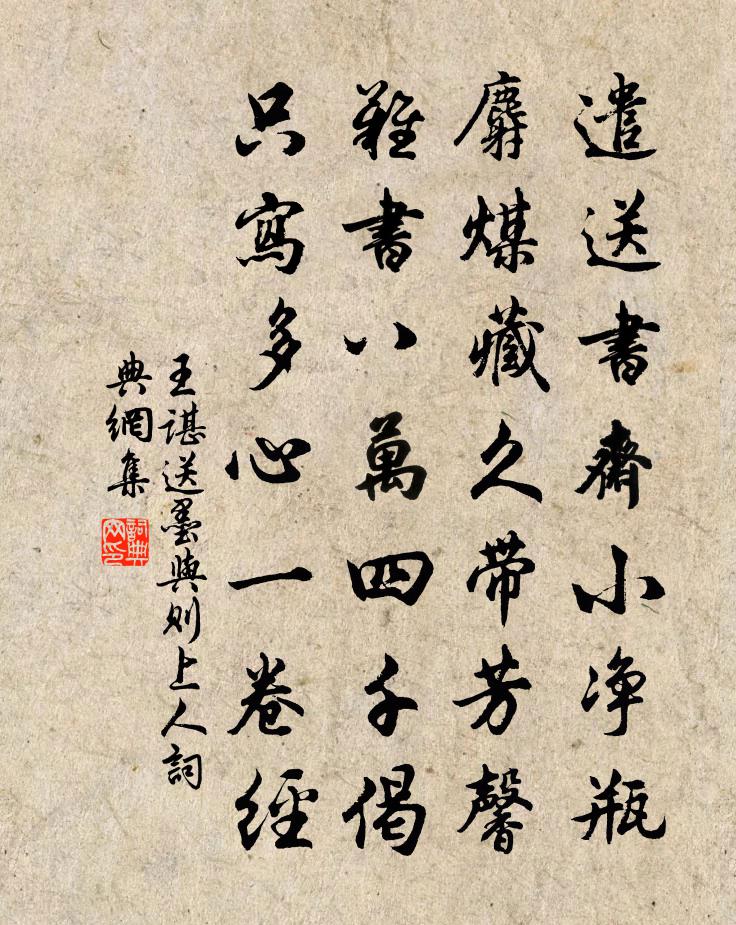 遣送書齋小净瓶
麝煤藏久帶芳馨
難書八萬四千偈
只寫多心一卷經
王諶送墨與則上人詞
典網集
詞典
网印